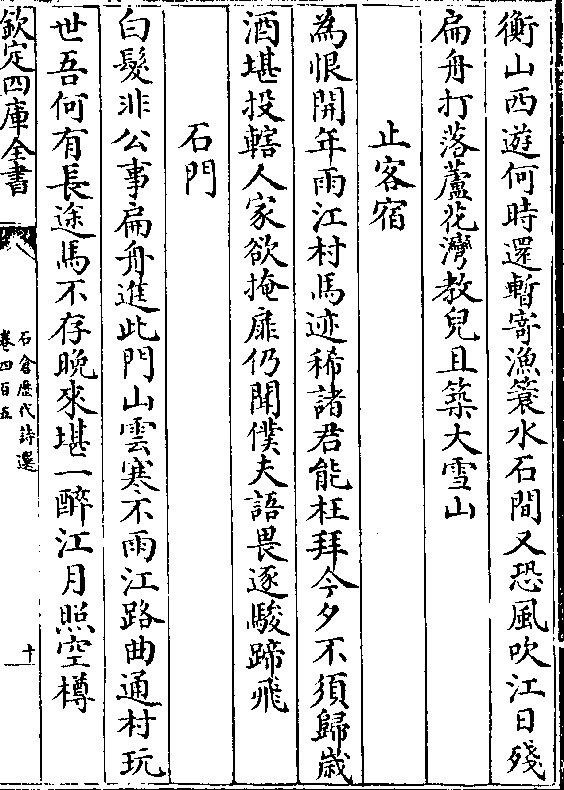 衡山西遊何時還暫寄漁簑水石間又恐風吹江日殘
扁舟打落蘆花灣教兒且築大雪山
止客宿
為恨開年雨江村馬迹稀諸君能枉拜今夕不須歸歳
酒堪投轄人家欲掩扉仍聞僕夫語畏逐駿蹄飛
石門
白髮非公事扁舟進此門山雲寒不雨江路曲通村玩
世吾何有長途馬不存晚來堪一醉江月照空樽
欽定四庫全書
石倉歷代詩選
卷四百五
十